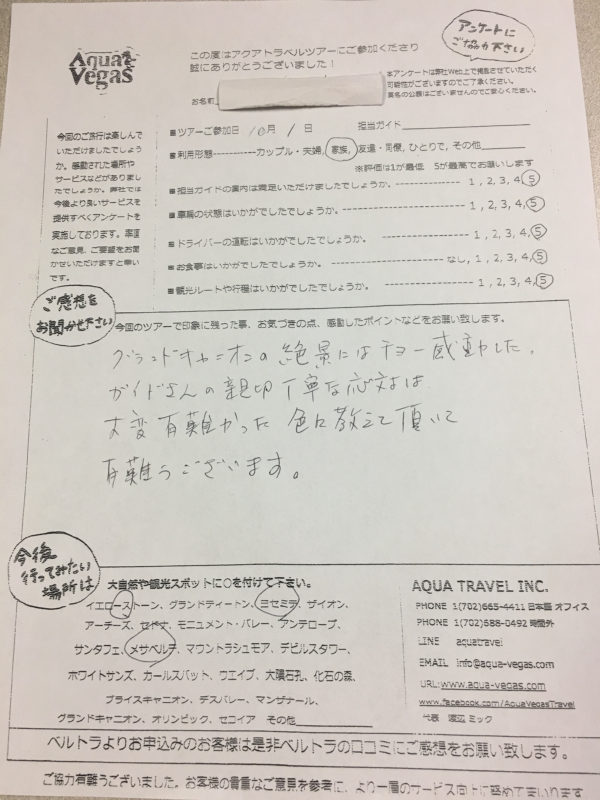 Aqua Vegas
この度はアクアトラベルツアーにご参加くださり
誠にありがとうございました！
アンケートに
ご協力下さい
本アンケートは弊社Web上で掲載させていただく
可能性がございますのでご了承ください。
実名の公表はございませんのでご安心ください。
お名前
■ツアーご参加日 10月 1 日 担当ガイド
■利用形態------------カップル・夫婦, 家族, 友達・同僚, ひとりで, その他
※評価は1が最低 5が最高でお願いします
■担当ガイドの案内は満足いただけましたでしょうか。 ---------------- 1, 2, 3, 4, 5
■車輛の状態はいかがでしたでしょうか。 ---------------- 1, 2, 3, 4, 5
■ドライバーの運転はいかがでしたでしょうか。 ---------------- 1, 2, 3, 4, 5
■お食事はいかがでしたでしょうか。 ---------------- なし, 1, 2, 3, 4, 5
■観光ルートや行程はいかがでしたでしょうか。 ---------------- 1, 2, 3, 4, 5
今回のご旅行は楽しんで
いただけましたでしょう
か。感動された場所や
サービスなどがありまし
たでしょうか。弊社では
今後より良いサービスを
提供すべくアンケートを
実施しております。率直
なご意見、ご要望をお聞
かせいただけますと幸い
です。
ご感想を
お聞かせ下さい
今回のツアーで印象に残った事、お気づきの点、感動したポイントなどをお願い致します。
グランドキャニオンの絶景にはチョー感動した。
ガイドさんの親切丁寧な応対は
大変有難かった 色々教えて頂いて
有難うございます。
今後
行ってみたい
場所は
大自然や観光スポットに○を付けて下さい。
イエローストーン、グランドティートン、ヨセミテ、ザイオン、
アーチーズ、セドナ、モニュメント・バレー、アンテロープ、
サンタフェ、メサベルデ、マウントラシュモア、デビルスタワー、
ホワイトサンズ、カールスバット、ウエイブ、大隕石孔、化石の森、
ブライスキャニオン、デスバレー、マンザナール、
グランドキャニオン、オリンピック、セコイア その他
AQUA TRAVEL INC.
PHONE 1(702)665-4411 日本語オフィス
PHONE 1(702)688-0492 時間外
LINE aquatravel
EMAIL info@aqua-vegas.com
URL:www.aqua-vegas.com
www.facebook.com/AquaVegasTravel
代表 渡辺 ミック
ベルトラよりお申込みのお客様は是非ベルトラの口コミにご感想をお願い致します。
ご協力有難うございました。お客様の貴重なご意見を参考に、より一層のサービス向上に努めてまいります